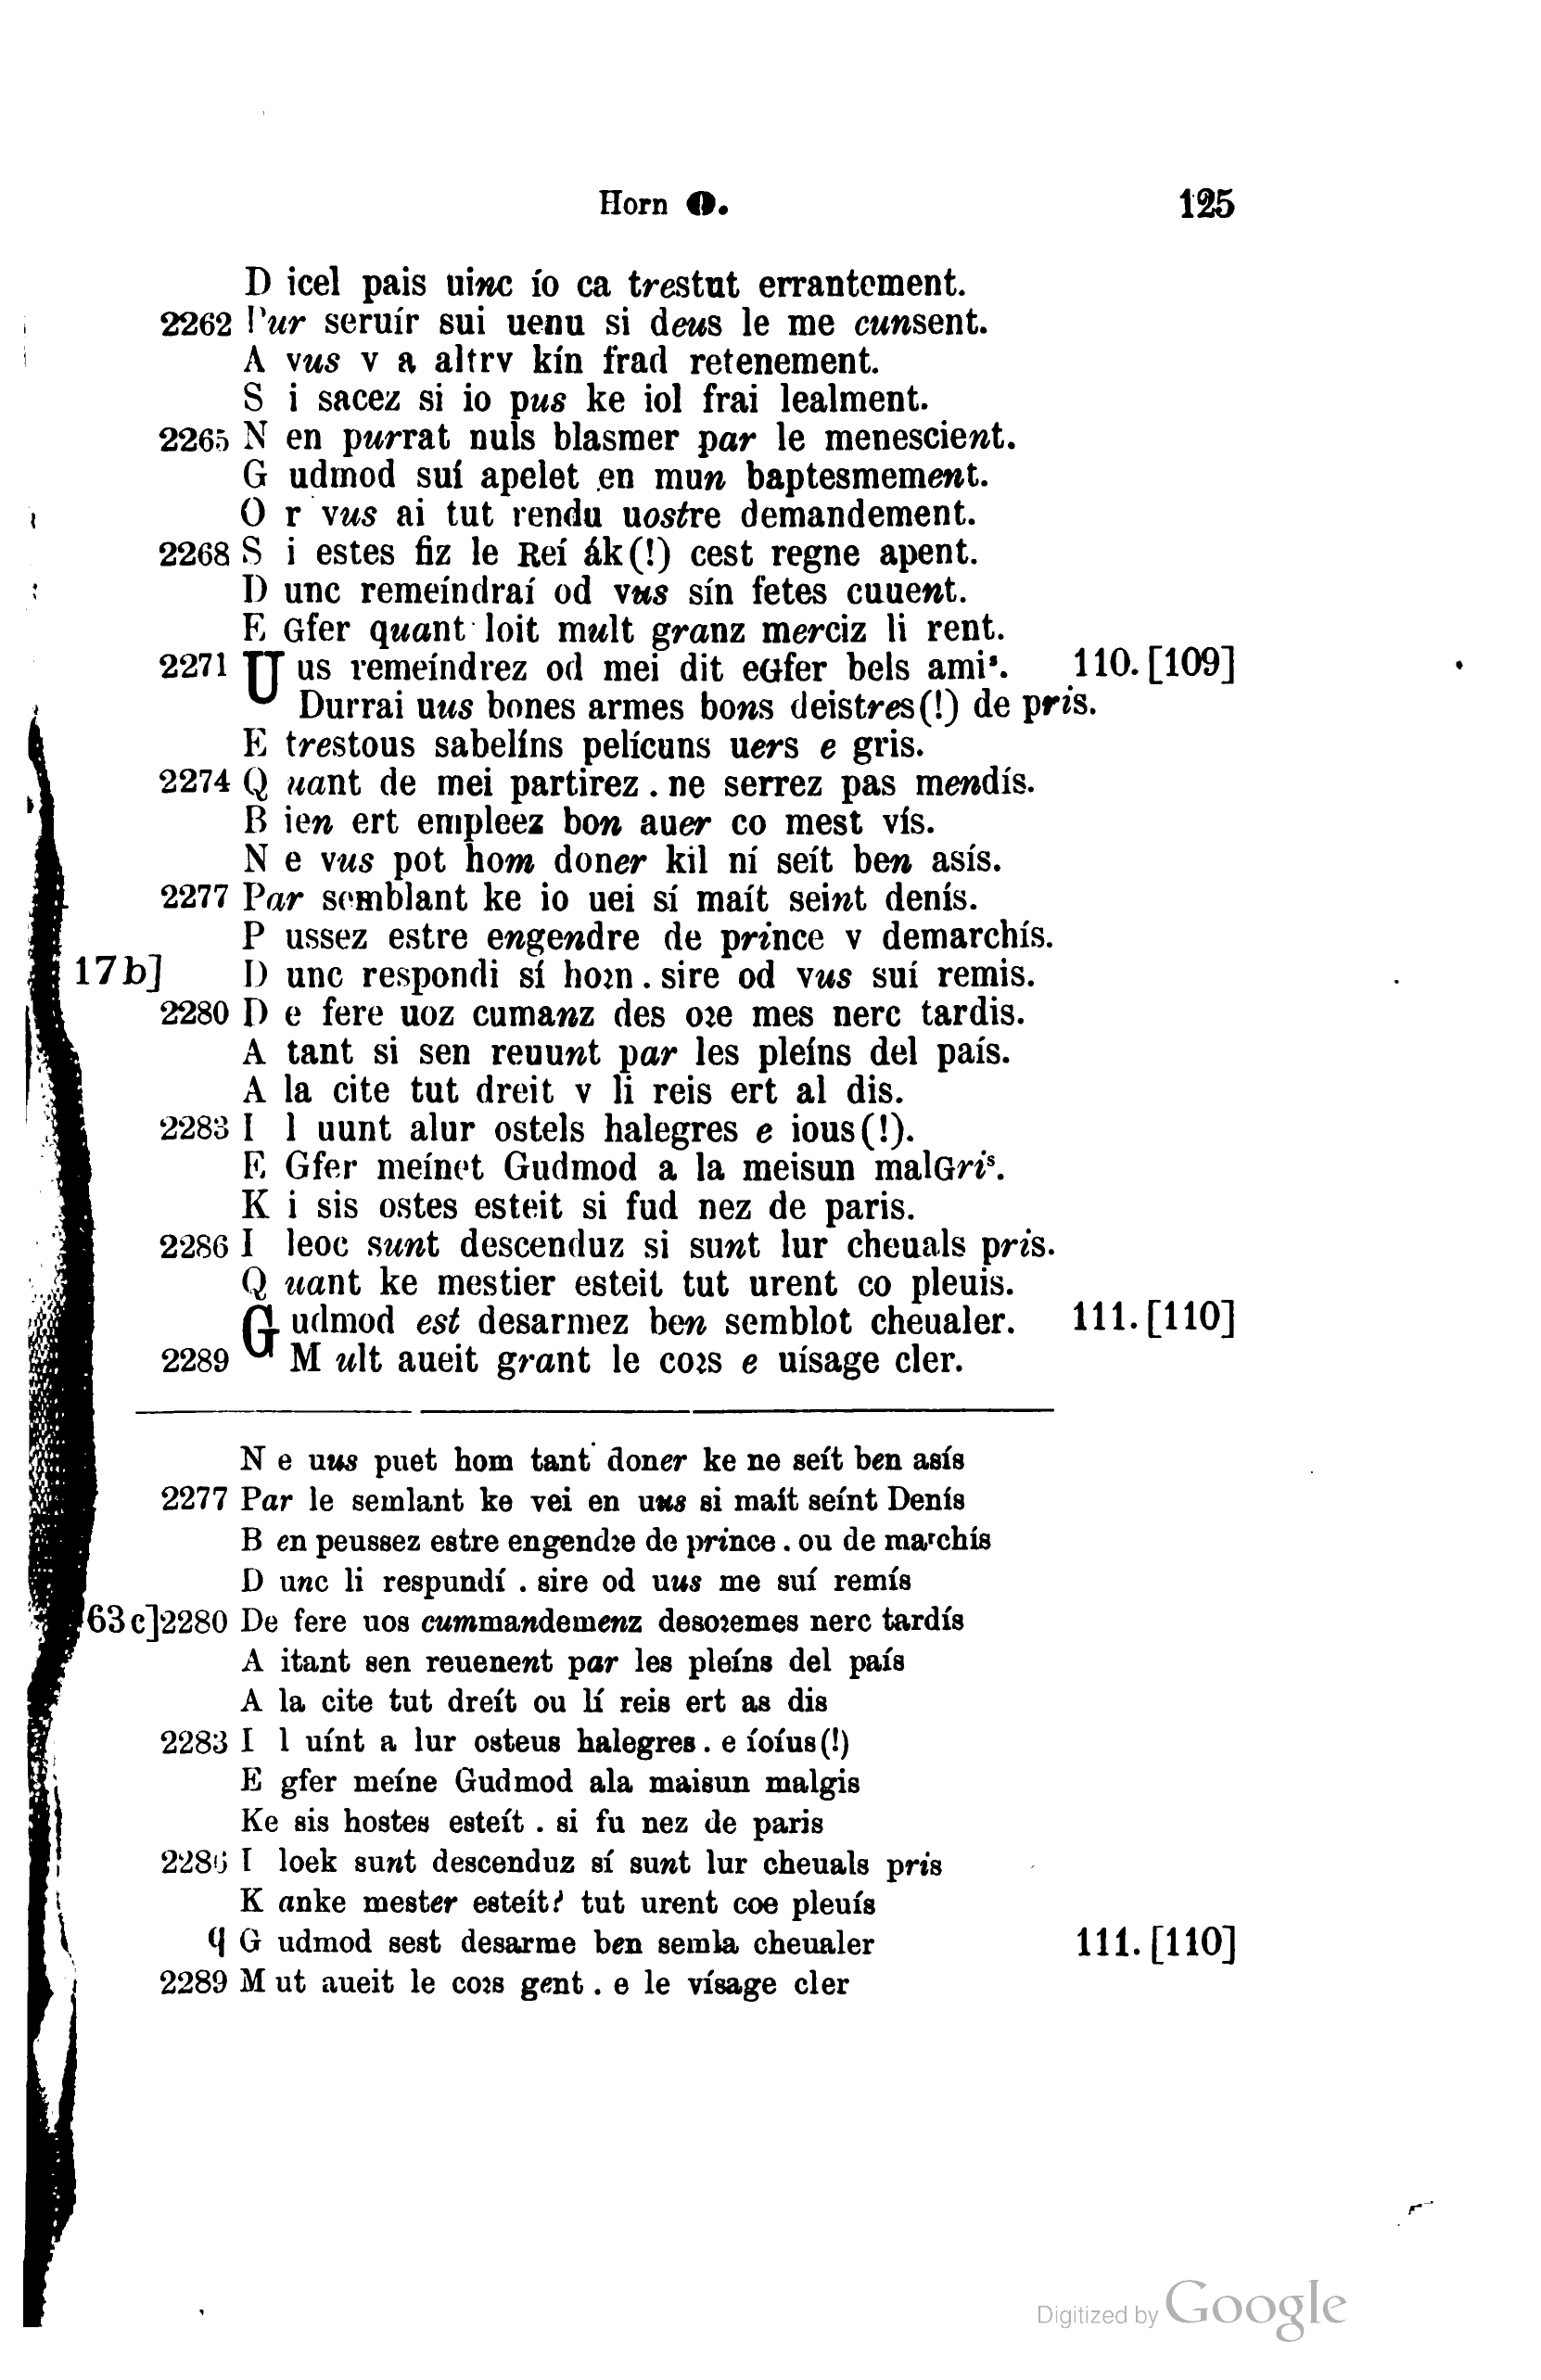 Horn O. 125
D icel pais uinc ío ca trestut errantement.
2262 Pur seruír sui uenu si deus le me cunsent.
A vus v a altrv kín frad retenement.
S i sacez si io pus ke iol frai lealment.
2265 N en purrat nuls blasmer par le menescient.
G udmod suí apelet en mun baptesmement.
O r vus ai tut rendu uostre demandement.
2268 S i estes fiz le Reí ák(!) cest regne apent.
D unc remeíndraí od vus sín fetes cuuent.
E Gfer quant loit mult granz merciz li rent.
2271 U us remeíndrez od mei dit eGfer bels amiˢ. 110. [109]
Durrai uus bones armes bons deistres(!) de pris.
E trestous sabelíns pelícuns uers e gris.
2274 Q uant de mei partirez . ne serrez pas mendís.
B ien ert empleez bon auer co mest vís.
N e vus pot hom doner kil ní seít ben asís.
2277 Par semblant ke io uei sí maít seint denís.
P ussez estre engendre de prince v demarchís.
17b] D unc respondi sí hoꝛn . sire od vus suí remis.
2280 D e fere uoz cumanz des oꝛe mes nerc tardis.
A tant si sen reuunt par les pleíns del país.
A la cite tut dreit v li reis ert al dis.
2283 I l uunt alur ostels halegres e ious(!).
E Gfer meínet Gudmod a la meisun malGriˢ.
K i sis ostes esteit si fud nez de paris.
2286 I leoc sunt descenduz si sunt lur cheuals pris.
Q uant ke mestier esteit tut urent co pleuis.
G udmod est desarmez ben semblot cheualer. 111. [110]
2289 M ult aueit grant le coꝛs e uísage cler.
N e uus puet hom tant doner ke ne seít ben asís
2277 Par le semlant ke vei en uus si maít seínt Denís
B en peussez estre engendꝛe de prince . ou de maʳchís
D unc li respundí . sire od uus me suí remís
63c] 2280 De fere uos cummandemenz desoꝛemes nerc tardís
A itant sen reuenent par les pleíns del país
A la cite tut dreít ou lí reis ert as dis
2283 I l uínt a lur osteus halegres . e íoíus(!)
E gfer meíne Gudmod ala maisun malgis
Ke sis hostes esteít . si fu nez de paris
2286 I loek sunt descenduz sí sunt lur cheuals pris
K anke mester esteít? tut urent coe pleuís
¶ G udmod sest desarme ben semla cheualer 111. [110]
2289 M ut aueit le coꝛs gent . e le vísage cler
Digitized by Google